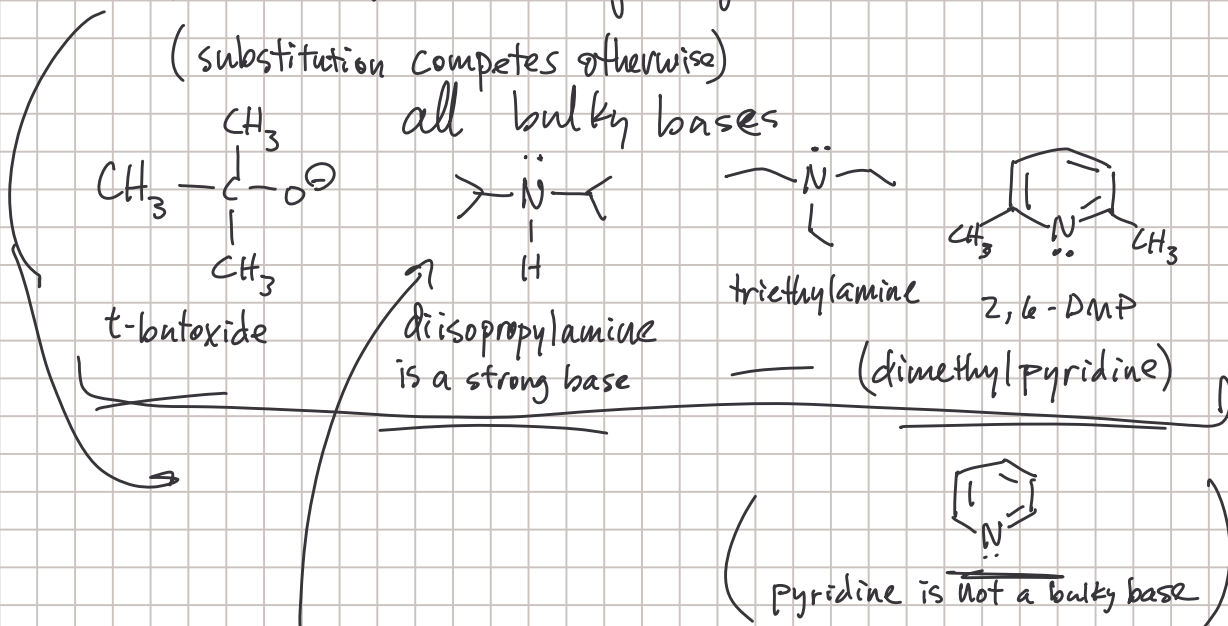 (substitution competes otherwise)
all bulky bases
CH3
CH3 — C — O⊖
CH3
t-butoxide
N
H
diisopropylamine
is a strong base
N
triethylamine
N
CH3
CH3
2,6-DMP
(dimethylpyridine)
N
(pyridine is not a bulky base)